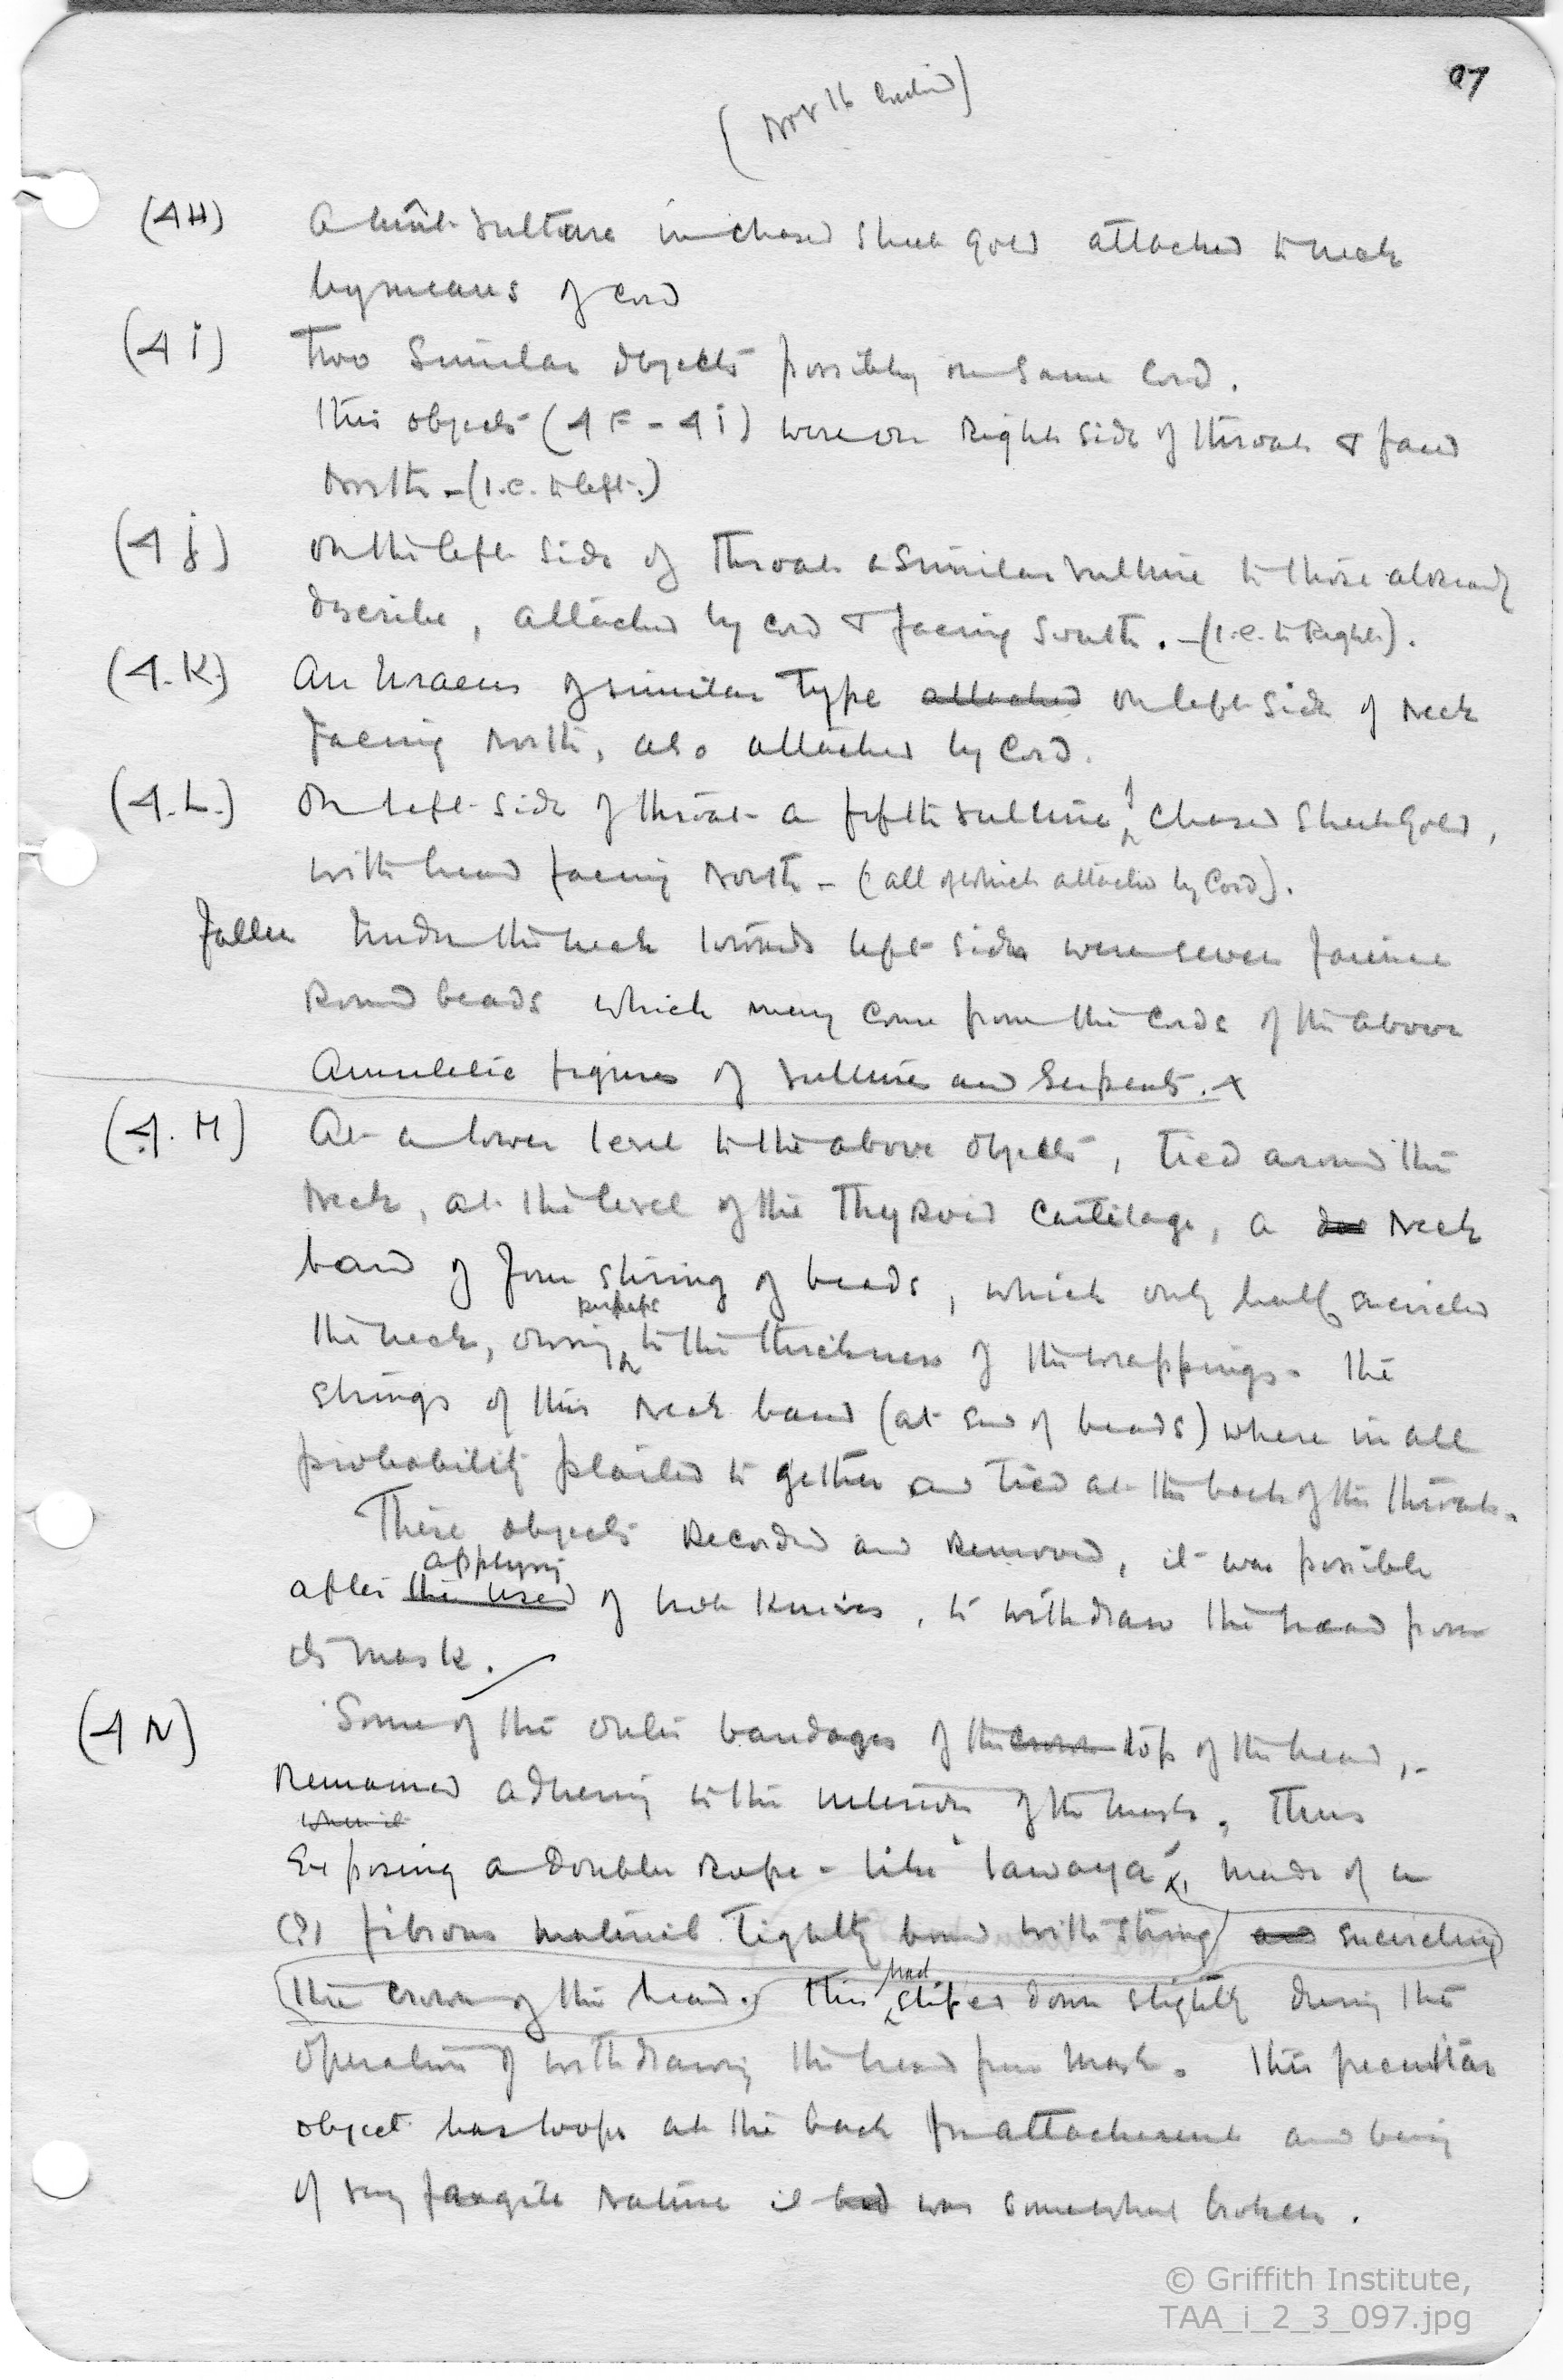 97
(Nov 16 )
(4H) A Mût-vulture in chased sheet gold attached to neck
by means of cord
(4 i) Two similar objects possibly on same cord.
this objects (4F - 4i) were on Right side of throat & faced
North - (I.e. to left.)
(4 j) on the left side of throat a similar vulture to those already
describe, attached by cord & facing South. - (I.e. to Right).
(4.K.) An Uraeus of similar type attached on left side of Neck
facing North, also attached by Cord.
(4.L.) On left side of throat a fifth vulture, chased Sheet Gold,
with head facing North - (all of which attached by Cord).
Fallen under the neck towards left side were seven faience
Round beads which may come from the cords of the above
Amuletic figures of vultures and Serpents. x
(4. M) At a lower level to the above objects, tied around the
Neck, at the level of the Thyroid Cartilage, a Neck
band of four string of beads, which only half encircled
perhaps
the neck, owing to the thickness of the wrappings. The
strings of this Neck band (at end of beads) where in all
probability plaited together and tied at the back of the throat.
These objects Recorded and Removed, it was possible
applying
after the used of hot knives, to withdraw the head from
its mask.
(4 N) Some of the outer bandages of the crown top of the head,
Remained adhering to the interior of the mask, thus
Exposing a double Rope-like 'lawaya', made of a
(?) fibrous material tightly bound with string and encircling
the crown of the head. This
had
slipped down slightly during the
operation of withdrawing the head from mask. This peculiar
object has loops at the back for attachement and being
of very fragile Nature it had was somewhat broken.
© Griffith Institute,
TAA_i_2_3_097.jpg